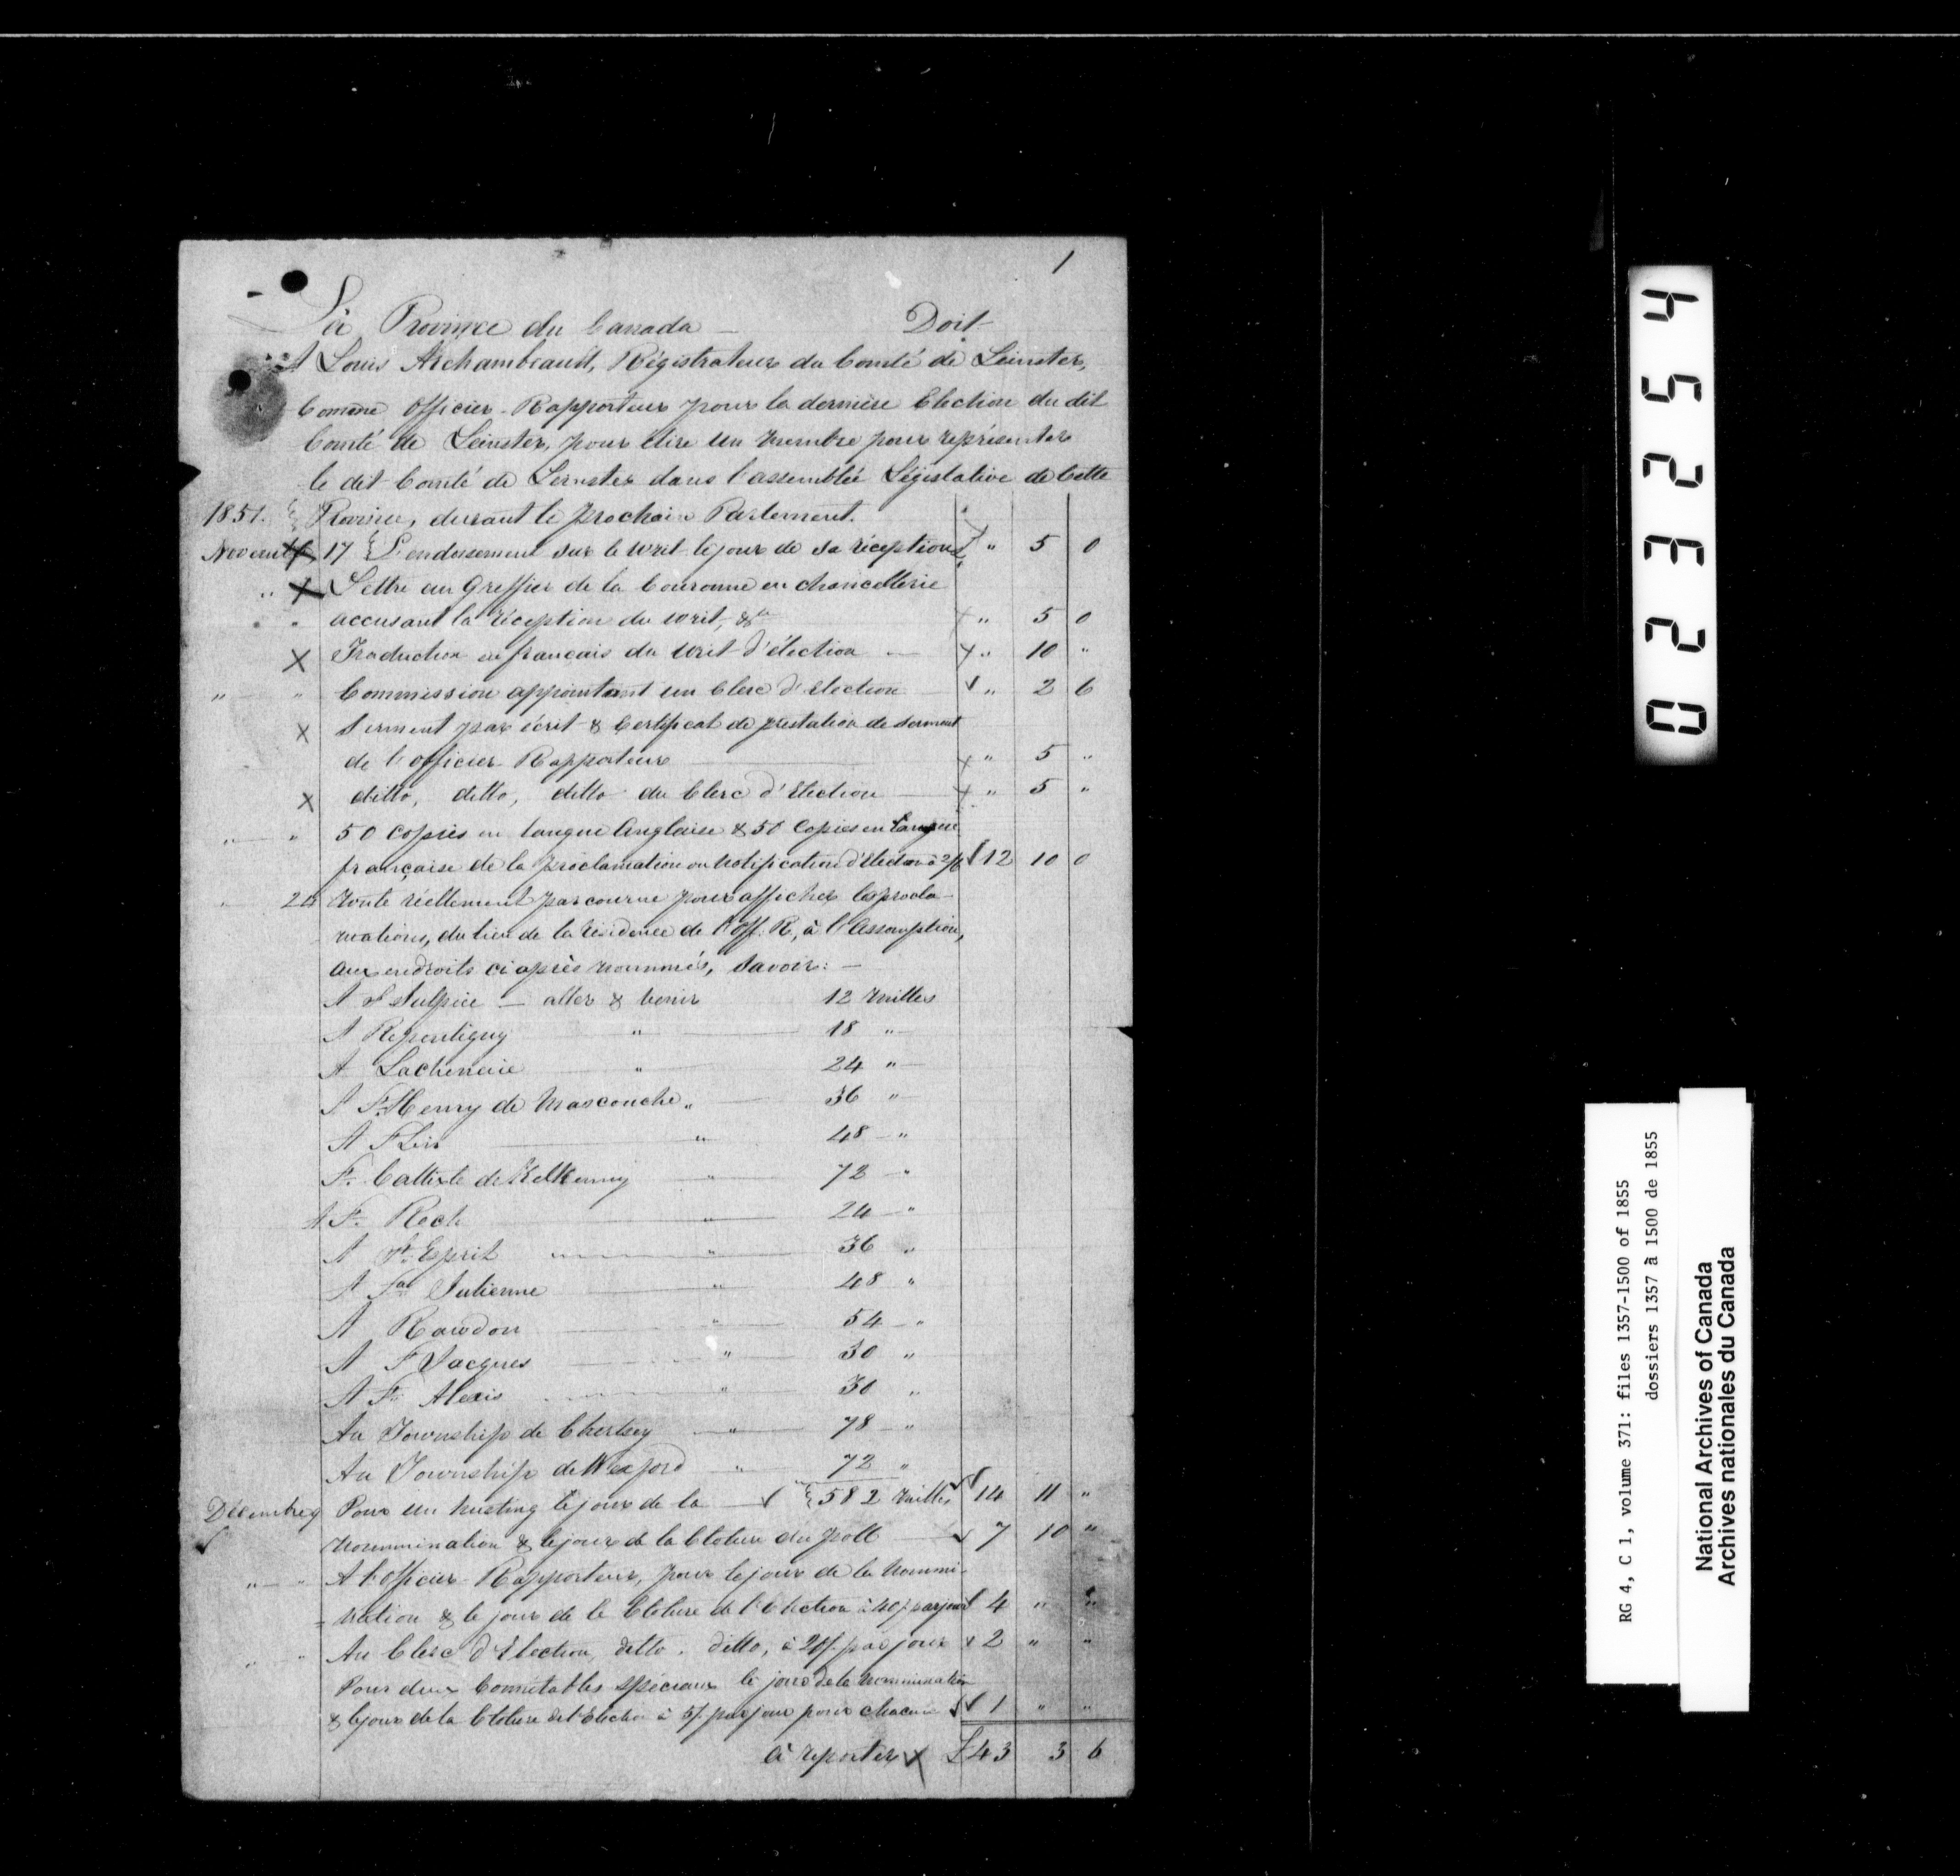 1
La Province du Canada — Doit
A Louis Archambeault, Régistrateur du Comté de Leinster,
Comme Officier-Rapporteur pour la dernière Election du dit
Comté de Leinster, pour élire un membre pour représenter
le dit Comté de Leinster dans l'assemblée Législative de Cette
1851. Province, durant le prochain Parlement.
Novembre 17 L'endossement sur le writ le jour de sa réception £ " 5 0
" Lettre au Greffier de la Couronne en chancellerie
" accusant la réception du writ, &a " 5 0
Traduction en français du writ d'élection " 10 "
" " Commission appointant un Clerc d'élection " 2 6
Serment par écrit & Certificat de prestation de serment
de l'officier-Rapporteur " 5 "
ditto, ditto, ditto du Clerc d'Election " 5 "
" " 50 Copies en langue Anglaise & 50 Copies en Langue
française de la proclamation ou notification d'élection à 2/6 12 10 0
" 24 Route réellement parcourue pour afficher les procla-
mations, du lieu de la résidence de l'Off. R, à l'Assomption,
aux endroits ci après nommés, Savoir: —
A St Sulpice — aller & venir 12 milles
A Repentigny " 18 "
A Lachenaie " 24 "
A St. Henry de Mascouche " 36 "
A St Lin " 48 "
St. Callixte de Kelkenny " 72 "
A St. Roch " 24 "
A St. Esprit " 36 "
A Ste Julienne " 48 "
A Rawdon " 54 "
A St Jacques " 30 "
A St. Alexis " 30 "
Au Township de Chertsey " 78 "
Au Township de Wexford " 72 "
Décembre 9 Pour un husting le jour de la — 582 milles 14 11 "
nommination & le jour de la Cloture du poll 7 10 "
" " A l'officier-Rapporteur, pour le jour de la nommi-
=nation & le jour de la Cloture de l'Election à 40/ par jour 4 " "
" " Au Clerc d'Election, ditto. ditto, à 20/. par jour 2 " "
Pour deux Connétables spéciaux le jour de la nommination
& le jour de la Cloture de l'Election à 5/. par jour pour chacun 1 " "
à reporter £43 3 6
023254
RG 4, C 1, volume 371: files 1357-1500 of 1855
dossiers 1357 à 1500 de 1855
National Archives of Canada
Archives nationales du Canada